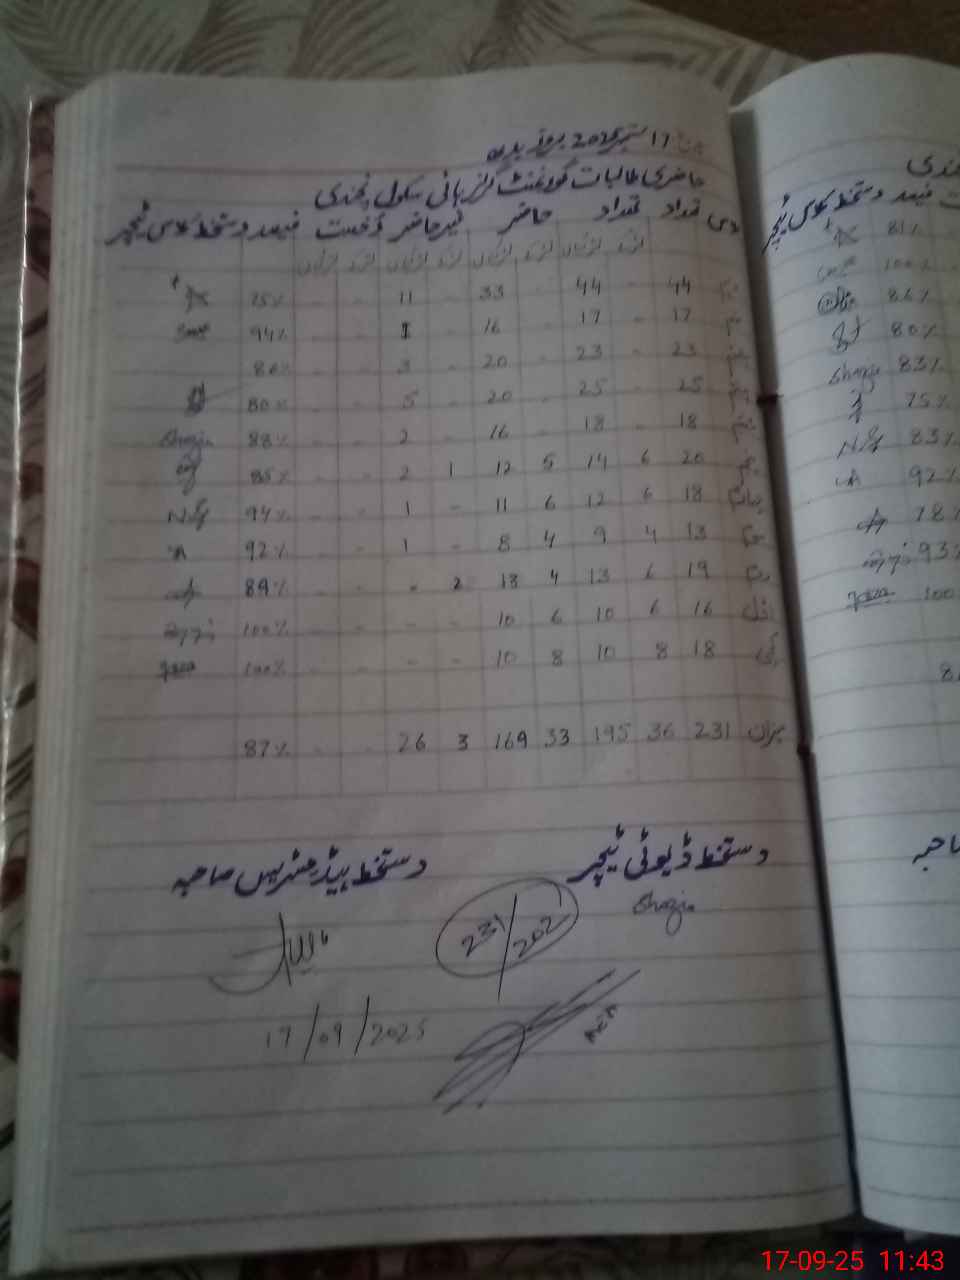 17 ستمبر 2025 بروز بدھ
حاضری طالبات گورنمنٹ گرلز ہائی سکول پنجندی
تعداد تعداد حاضر غیر حاضر رخصت فیصد دستخط کلاس ٹیچر
44 44 - 33 - 11 - - 75%
17 17 - 16 - 1 - - 94%
23 - 23 - 20 - 3 - - 86%
25 - 25 - 20 - 5 - - 80%
18 - 18 - 16 - 2 - - 88% Shazia
20 6 14 5 12 1 2 - - 85%
18 6 12 6 11 - 1 - - 94%
13 4 9 4 8 - 1 - - 92%
19 6 13 4 13 2 - - - 89%
اول 16 6 10 6 10 - - - - 100%
18 8 10 8 10 - - - - 100%
میزان 231 36 195 33 169 3 26 - - 87%
دستخط ڈیوٹی ٹیچر دستخط ہیڈ مسٹریس صاحبہ
Shazia
231/202
17/09/2025
دستخط کلاس ٹیچر فیصد
81%
100%
86%
80%
Shazia 83%
75%
83%
92%
78%
93%
100
17-09-25 11:43